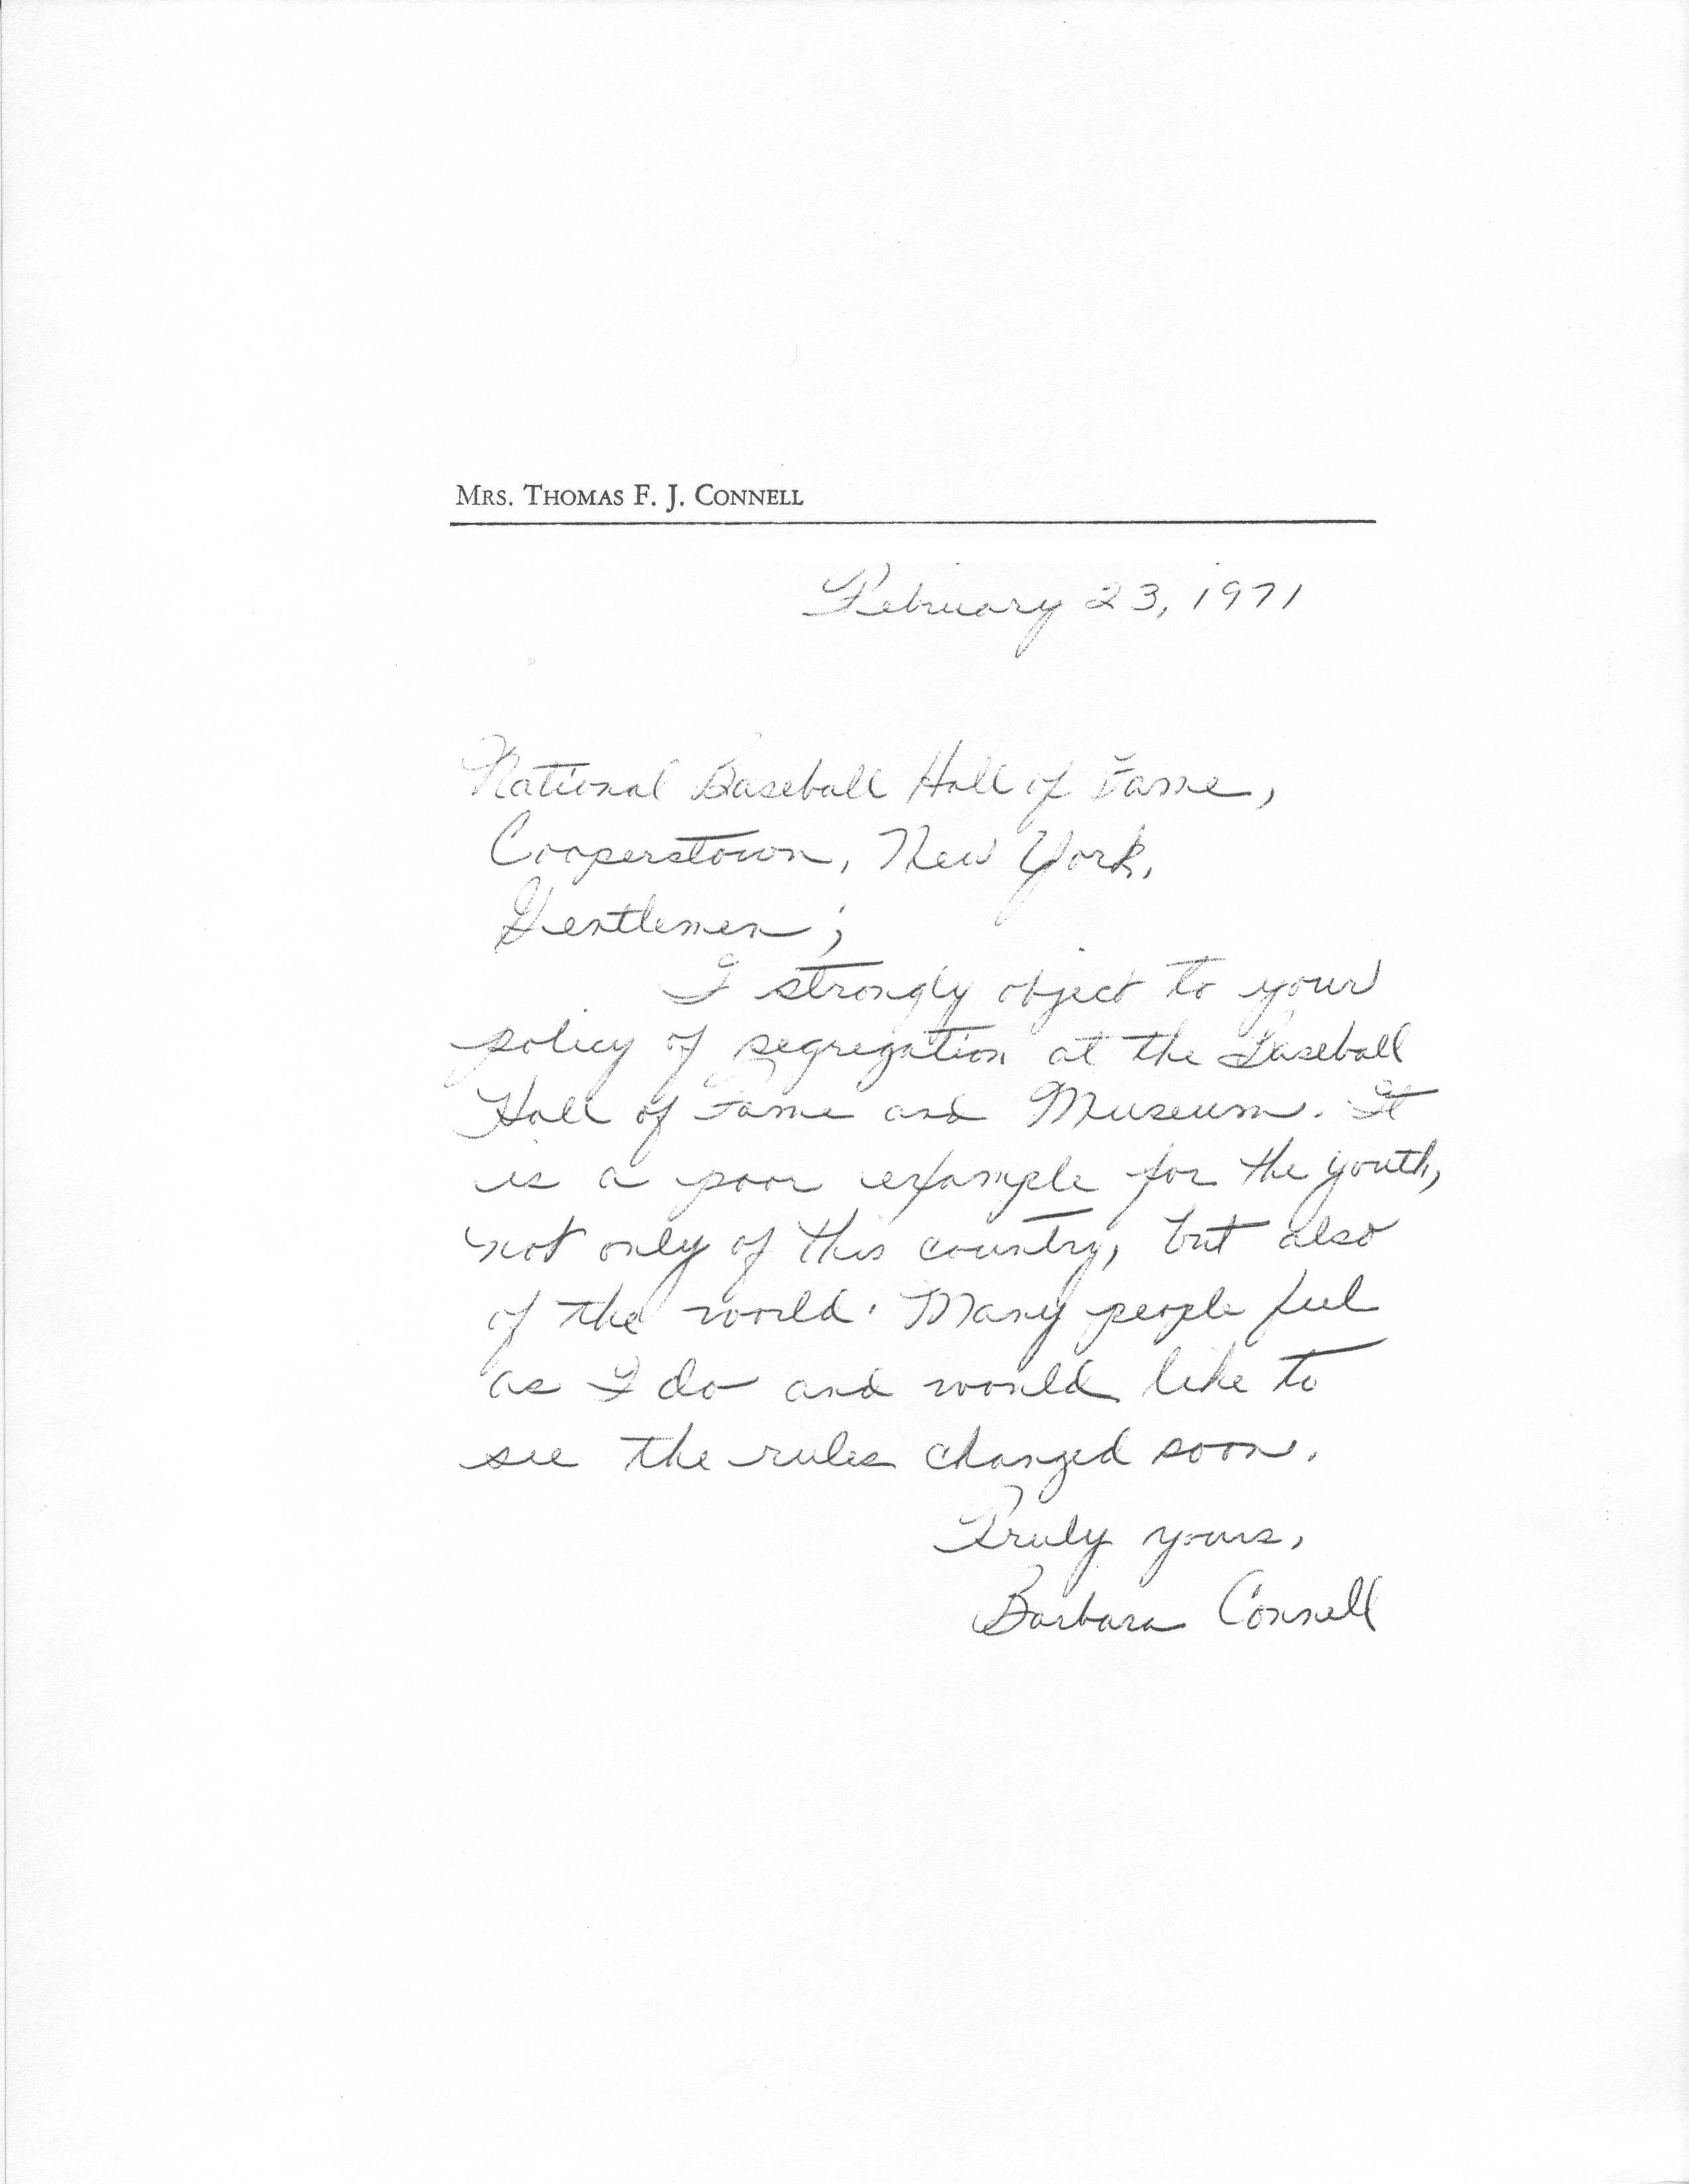 MRS. THOMAS F. J. CONNELL
February 23, 1971
National Baseball Hall of Fame,
Cooperstown, New York,
Gentlemen;
I strongly object to your
policy of segregation at the Baseball
Hall of Fame and Museum. It
is a poor example for the youth,
not only of this country, but also
of the world. Many people feel
as I do and would like to
see the rules changed soon.
Truly yours,
Barbara Connell